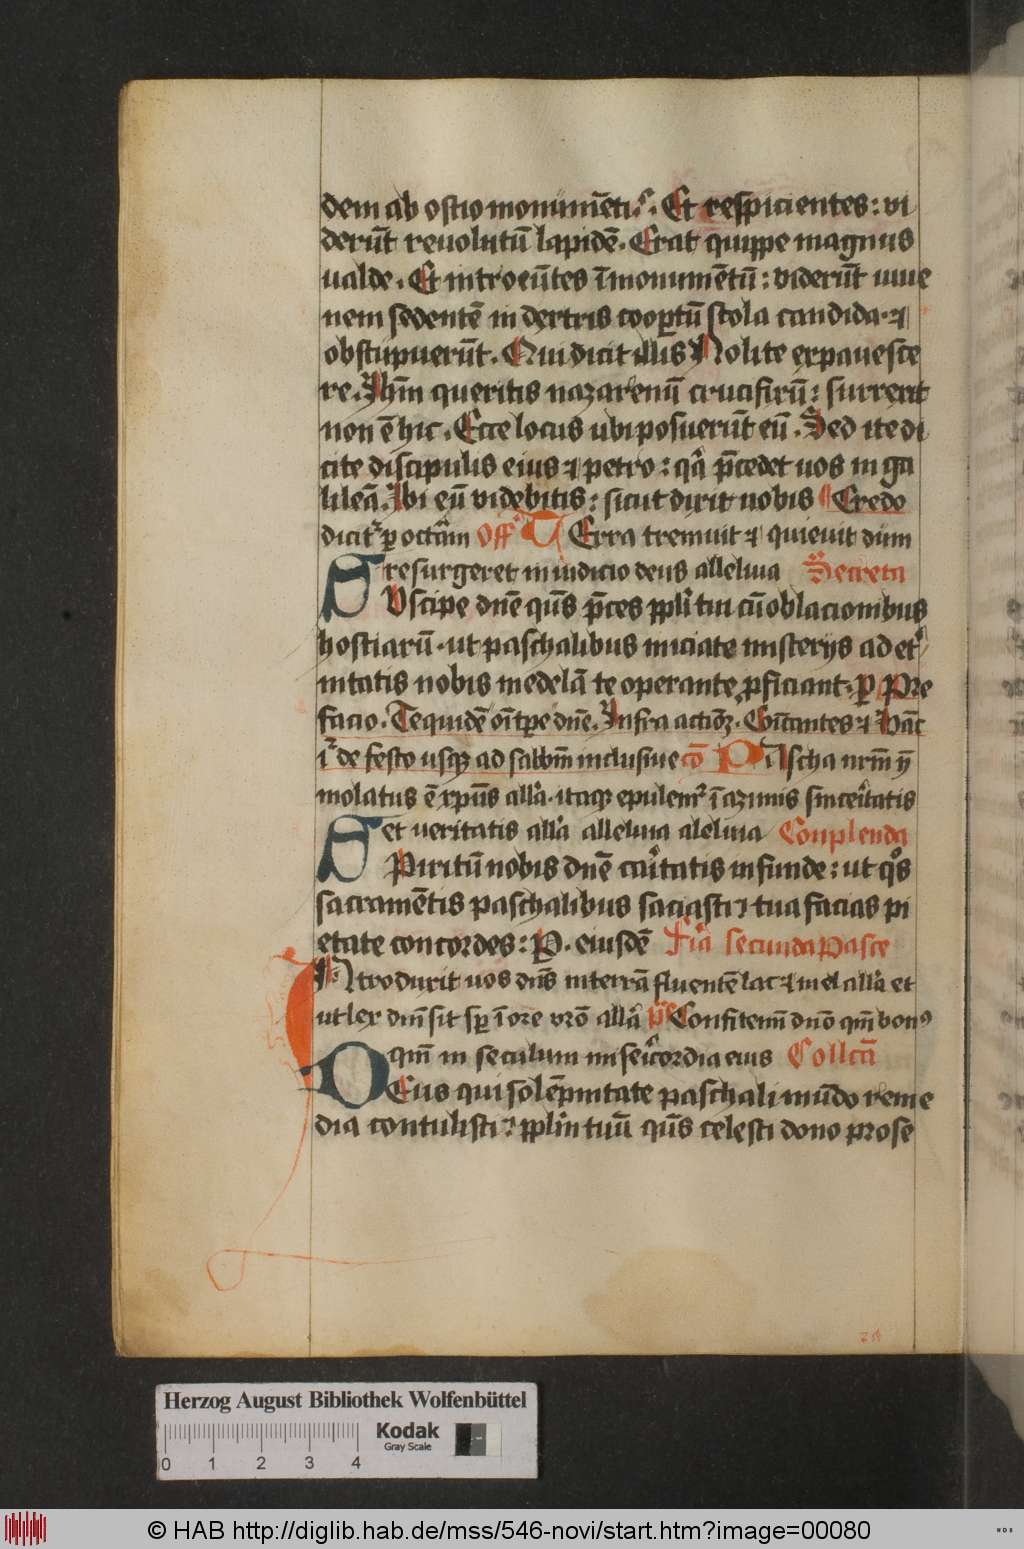 dem ab ostio monumēti⸗. Et respicientes: vi
derūt reuolutū lapidē. Erat quippe magnus
ualde. Et introeūtes ī monumētū: viderūt iuue
nem sedentē in dextris coopertū stola candida. ⁊
obstupuerūt. Qui dicit illis Nolite expauesce
re. Jhm̄ queritis nazarenū crucifixū: surrexit
non ē hic. Ecce locus ubi posuerūt eū. Sed ite di
cite discipulis eius ⁊ petro: qꝛ p̄cedet uos in ga
lileā. Ibi eū videbitis: sicut dixit uobis Credo
dicit᷑ ꝑ octām Off Terra tremuit ⁊ quieuit dum
resurgeret in iudicio deus alleluia Secreta
SUscipe dn̄e qūs p̄ces ppl̄i tui cū oblacionibus
hostiarū. ut paschalibus iniciate misterijs ad et᷑
nitatis nobis medelā te operante ꝓficiant. ꝑ Pre
facio. Te quidē oītꝑe dn̄e. Infra actiōꝫ. Cōicantes ⁊ Hāc
i᷑ de festo usqꝫ ad sabbm̄ inclusiue cō PAscha nrm̄ ȳ
molatus ē xp̄us all̄a. itaqꝫ epulem᷑ ī azimis sinceritatis
et veritatis all̄a alleluia aleluia Conplenda
SPiritū nobis dn̄e caritatis infunde: ut q̊s
sacramētis paschalibus saciasti: tua facias pi
etate concordes: P. eiusdē fīa secunda Pasce
INtroduxit uos dn̄s in terrā fluentē lac ⁊ mel all̄a et
ut lex dn̄i sit sꝑ ī ore vrō all̄a ps Confitemī dn̄o qm̄ bonꝰ
qm̄ in seculum misericordia eius Collcā
DEus qui solēpnitate paschali mūdo reme
dia contulisti: ppl̄m tuū qūs celesti dono prose
Herzog August Bibliothek Wolfenbüttel
Kodak
Gray Scale
0 1 2 3 4
© HAB http://diglib.hab.de/mss/546-novi/start.htm?image=00080